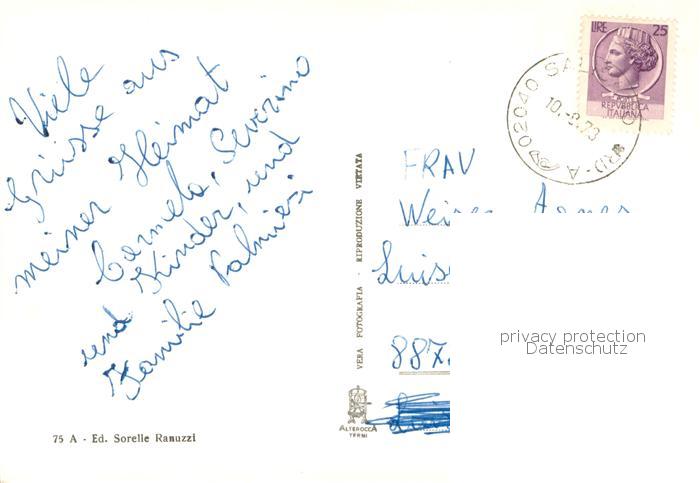 Viele
Grüsse aus
meiner Heimat
Carmela, Severino
und Kinder, und
Familie Palmieri
75 A - Ed. Sorelle Ranuzzi
VERA FOTOGRAFIA - RIPRODUZIONE VIETATA
ALTEROCCA
TERNI
LIRE 25
REPUBBLICA
ITALIANA
02040 SAL
10.-8.73
FRAU
Luis
887
privacy protection
Datenschutz